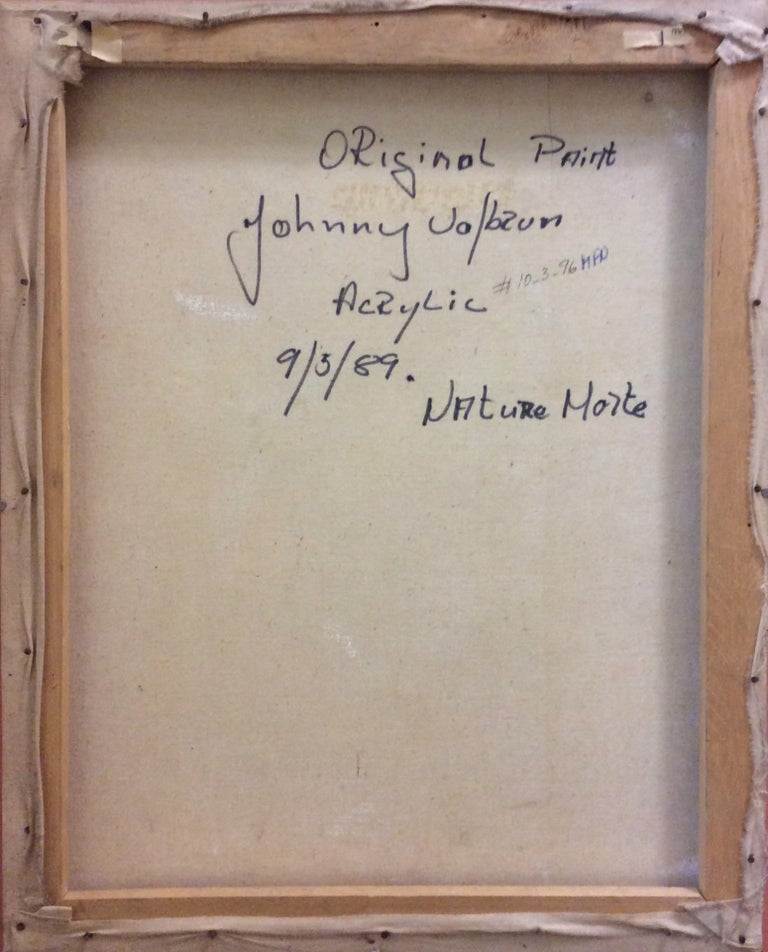 ORiginal Paint
Johnny
Acrylic
# 10-3-96
9/3/89.
Nature Morte